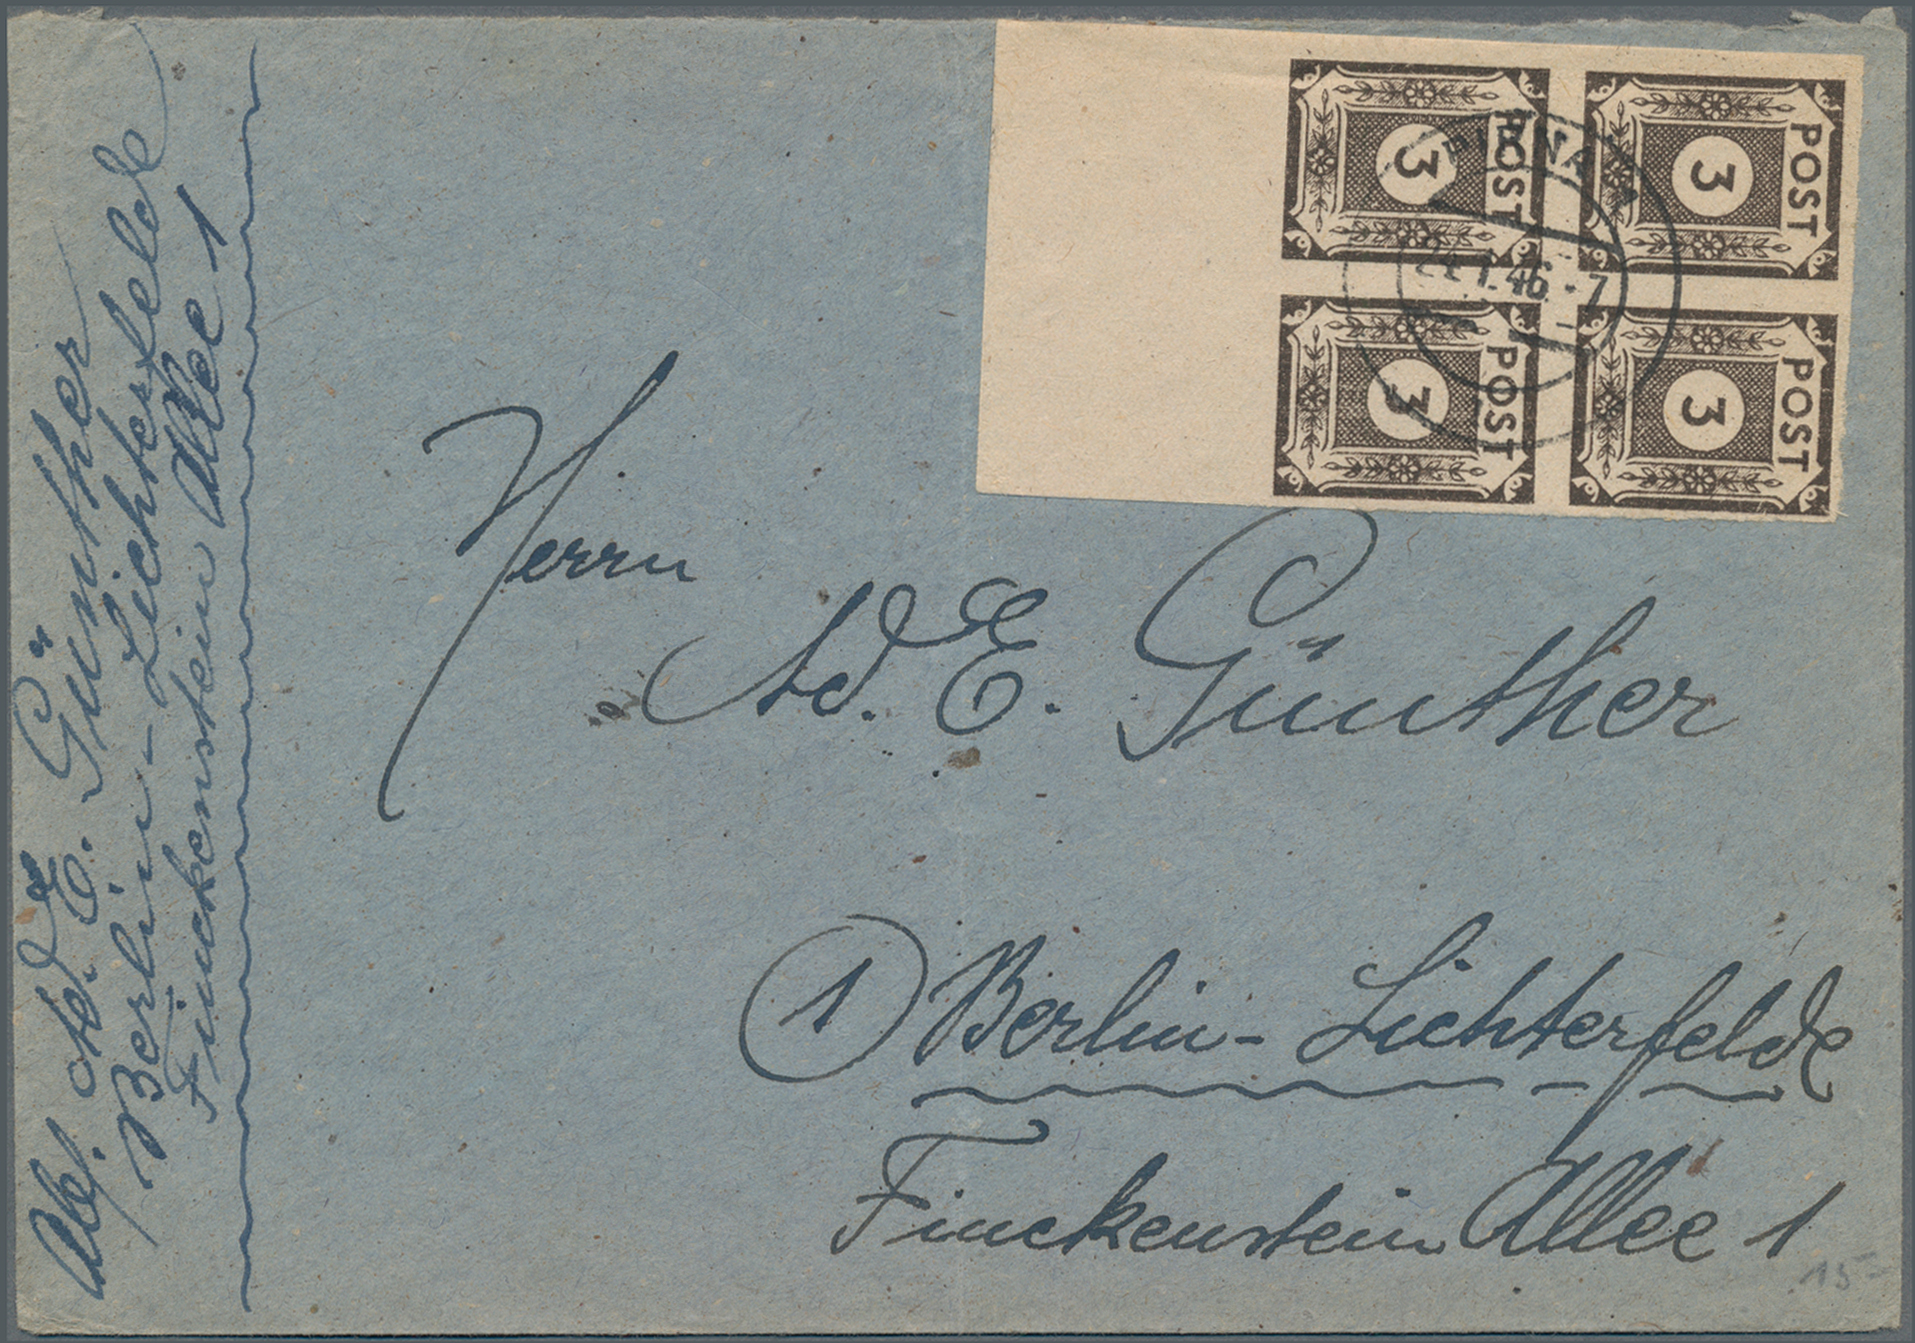 Abs. Ad. E. Günther
Berlin-Lichterfelde
Finckenstein Allee 1
POST
3
POST
3
POST
3
POST
3
PIRNA
1.46.-7
Herrn
Ad. E. Günther
1 Berlin-Lichterfelde
Finckenstein Allee 1
15-